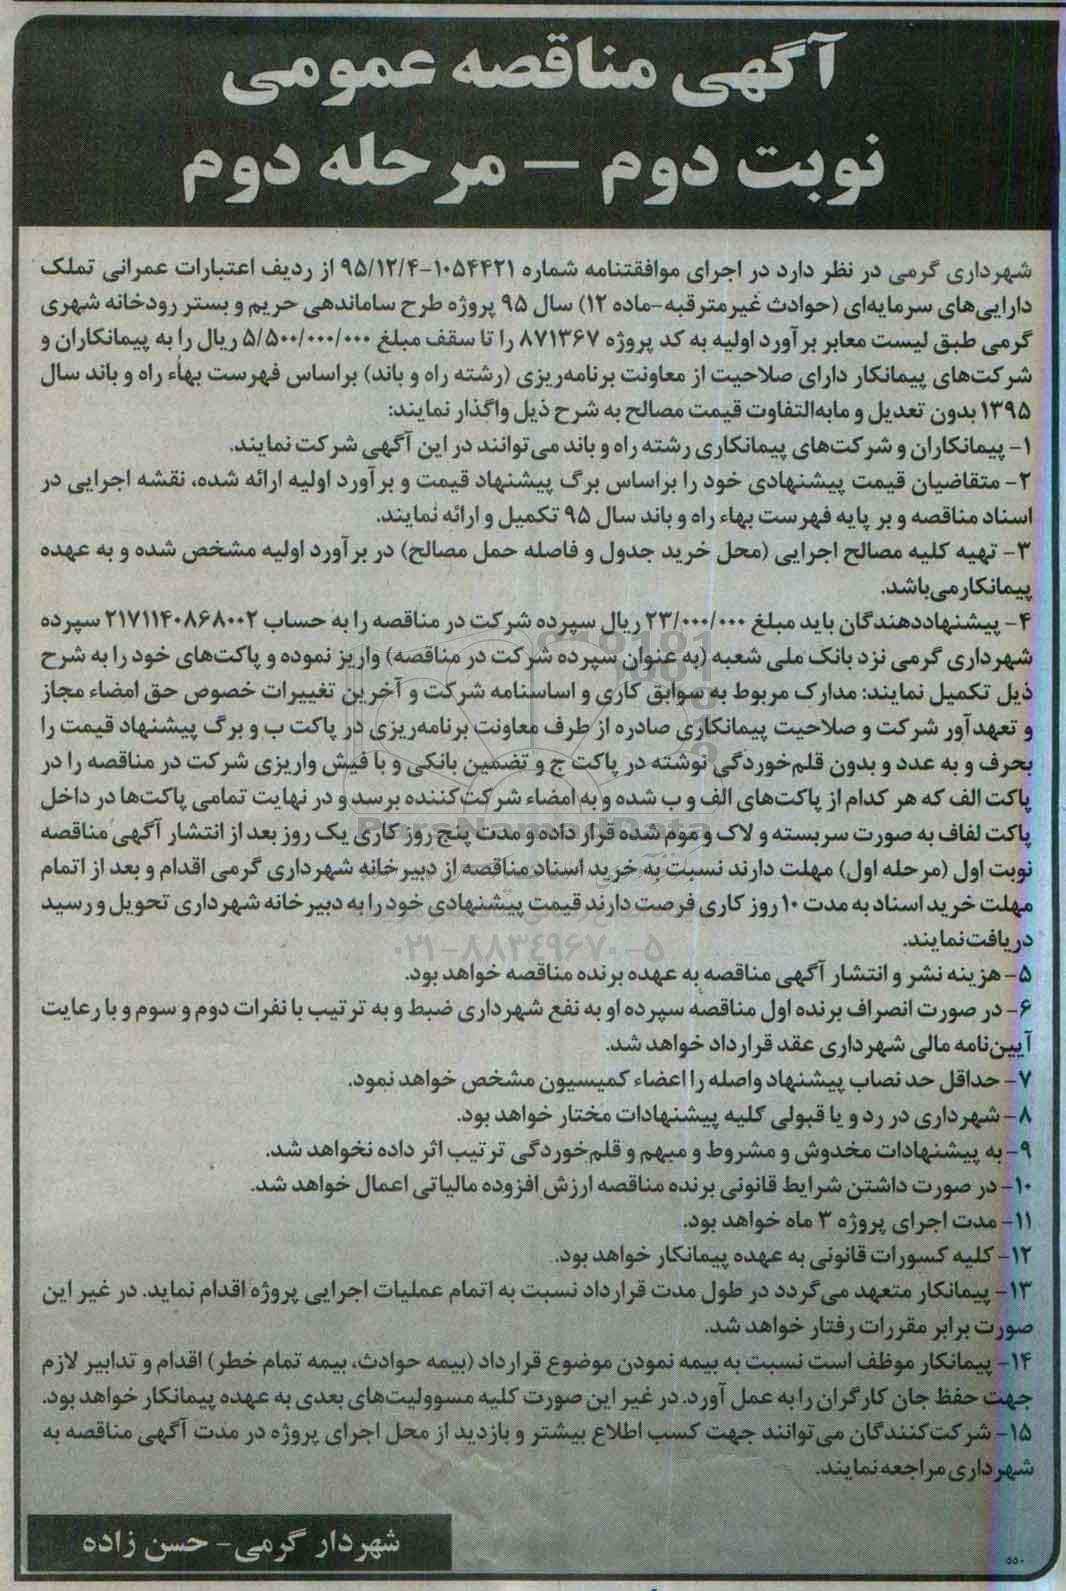 آگهی مناقصه عمومی
نوبت دوم – مرحله دوم
شهرداری گرمی در نظر دارد در اجرای موافقتنامه شماره ۱۰۵۴۴۲۱-۹۵/۱۲/۴ از ردیف اعتبارات عمرانی تملک
دارایی‌های سرمایه‌ای (حوادث غیرمترقبه-ماده ۱۲) سال ۹۵ پروژه طرح ساماندهی حریم و بستر رودخانه شهری
گرمی طبق لیست معابر برآورد اولیه به کد پروژه ۸۷۱۳۶۷ را تا سقف مبلغ ۵/۵۰۰/۰۰۰/۰۰۰ ریال را به پیمانکاران و
شرکت‌های پیمانکار دارای صلاحیت از معاونت برنامه‌ریزی (رشته راه و باند) براساس فهرست بهاء راه و باند سال
۱۳۹۵ بدون تعدیل و مابه‌التفاوت قیمت مصالح به شرح ذیل واگذار نمایند:
۱- پیمانکاران و شرکت‌های پیمانکاری رشته راه و باند می‌توانند در این آگهی شرکت نمایند.
۲- متقاضیان قیمت پیشنهادی خود را براساس برگ پیشنهاد قیمت و برآورد اولیه ارائه شده، نقشه اجرایی در
اسناد مناقصه و بر پایه فهرست بهاء راه و باند سال ۹۵ تکمیل و ارائه نمایند.
۳- تهیه کلیه مصالح اجرایی (محل خرید جدول و فاصله حمل مصالح) در برآورد اولیه مشخص شده و به عهده
پیمانکار می‌باشد.
۴- پیشنهاددهندگان باید مبلغ ۲۳/۰۰۰/۰۰۰ ریال سپرده شرکت در مناقصه را به حساب ۲۱۷۱۱۴۰۸۶۸۰۰۲ سپرده
شهرداری گرمی نزد بانک ملی شعبه (به عنوان سپرده شرکت در مناقصه) واریز نموده و پاکت‌های خود را به شرح
ذیل تکمیل نمایند: مدارک مربوط به سوابق کاری و اساسنامه شرکت و آخرین تغییرات خصوص حق امضاء مجاز
و تعهدآور شرکت و صلاحیت پیمانکاری صادره از طرف معاونت برنامه‌ریزی در پاکت ب و برگ پیشنهاد قیمت را
بحرف و به عدد و بدون قلم‌خوردگی نوشته در پاکت ج و تضمین بانکی و یا فیش واریزی شرکت در مناقصه را در
پاکت الف که هر کدام از پاکت‌های الف و ب شده و به امضاء شرکت‌کننده برسد و در نهایت تمامی پاکت‌ها در داخل
پاکت لفاف به صورت سربسته و لاک و موم شده قرار داده و مدت پنج روز کاری یک روز بعد از انتشار آگهی مناقصه
نوبت اول (مرحله اول) مهلت دارند نسبت به خرید اسناد مناقصه از دبیرخانه شهرداری گرمی اقدام و بعد از اتمام
مهلت خرید اسناد به مدت ۱۰ روز کاری فرصت دارند قیمت پیشنهادی خود را به دبیرخانه شهرداری تحویل و رسید
دریافت نمایند.
۰۲۱-۸۸۳۴۹۶۷۰-۵
۵- هزینه نشر و انتشار آگهی مناقصه به عهده برنده مناقصه خواهد بود.
۶- در صورت انصراف برنده اول مناقصه سپرده او به نفع شهرداری ضبط و به ترتیب با نفرات دوم و سوم و با رعایت
آیین‌نامه مالی شهرداری عقد قرارداد خواهد شد.
۷- حداقل حد نصاب پیشنهاد واصله را اعضاء کمیسیون مشخص خواهد نمود.
۸- شهرداری در رد و یا قبولی کلیه پیشنهادات مختار خواهد بود.
۹- به پیشنهادات مخدوش و مشروط و مبهم و قلم‌خوردگی ترتیب اثر داده نخواهد شد.
۱۰- در صورت داشتن شرایط قانونی برنده مناقصه ارزش افزوده مالیاتی اعمال خواهد شد.
۱۱- مدت اجرای پروژه ۳ ماه خواهد بود.
۱۲- کلیه کسورات قانونی به عهده پیمانکار خواهد بود.
۱۳- پیمانکار متعهد می‌گردد در طول مدت قرارداد نسبت به اتمام عملیات اجرایی پروژه اقدام نماید. در غیر این
صورت برابر مقررات رفتار خواهد شد.
۱۴- پیمانکار موظف است نسبت به بیمه نمودن موضوع قرارداد (بیمه حوادث، بیمه تمام خطر) اقدام و تدابیر لازم
جهت حفظ جان کارگران را به عمل آورد. در غیر این صورت کلیه مسوولیت‌های بعدی به عهده پیمانکار خواهد بود.
۱۵- شرکت‌کنندگان می‌توانند جهت کسب اطلاع بیشتر و بازدید از محل اجرای پروژه در مدت آگهی مناقصه به
شهرداری مراجعه نمایند.
شهردار گرمی- حسن زاده
۵۵۰